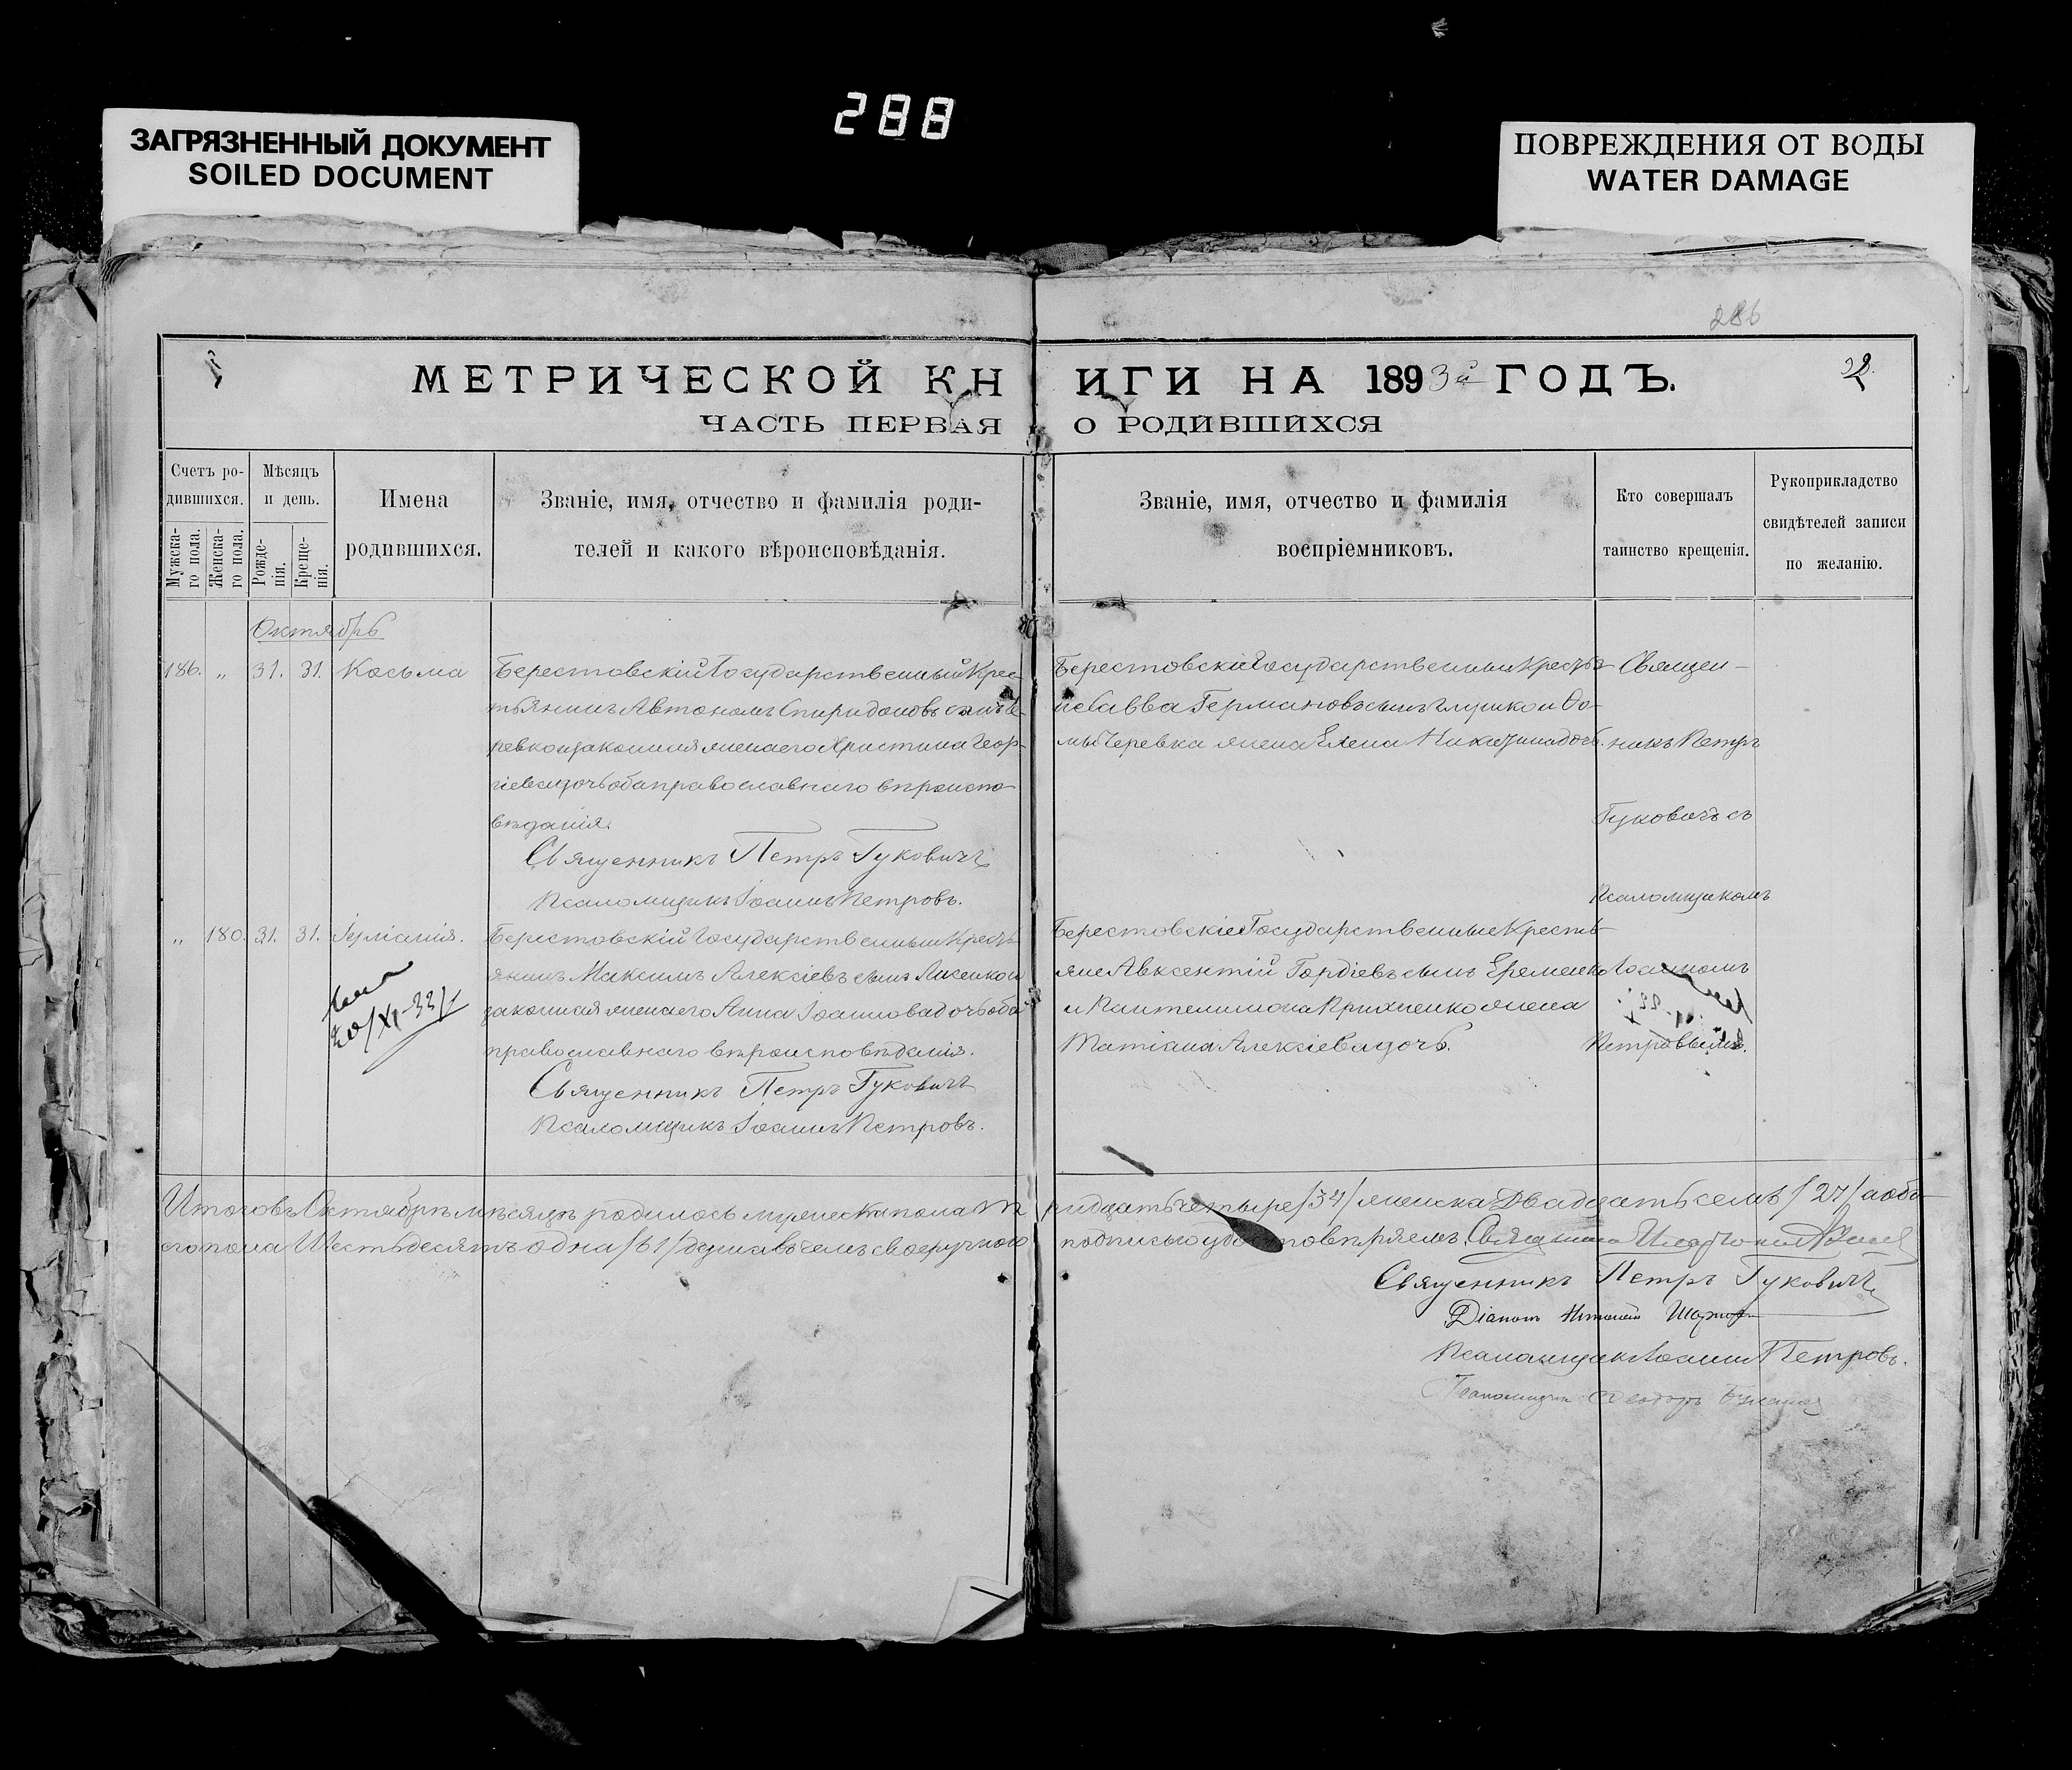 288
ЗАГРЯЗНЕННЫЙ ДОКУМЕНТ
SOILED DOCUMENT
ПОВРЕЖДЕНИЯ ОТ ВОДЫ
WATER DAMAGE
286
МЕТРИЧЕСКОЙ КНИГИ НА 1893й ГОДЪ.
ЧАСТЬ ПЕРВАЯ О РОДИВШИХСЯ
Счетъ ро-
дившихся.
Мужска-
го пола.
Женска-
го пола.
Мѣсяцъ
и день.
Рожде-
нія.
Креще-
нія.
Имена
родившихся.
Званіе, имя, отчество и фамилія роди-
телей и какого вѣроисповѣданія.
Званіе, имя, отчество и фамилія
воспріемниковъ.
Кто совершалъ
таинство крещенія.
Рукоприкладство
свидѣтелей записи
по желанію.
Октябрь
186. „ 31. 31. Косьма
Берестовскій Государственный Крес-
тьянинъ Автономъ Спиридоновъ сынъ Че-
ревко и законная жена его Христина Геор-
гіева дочь оба православнаго вѣроиспо-
вѣданія.
Священникъ Петръ Гуковичъ
Псаломщикъ Іоаннъ Петровъ.
Берестовскіе Государственные Кресть-
яне Савва Германовъ сынъ Глушко и Ѳо-
мы Черевка жена Елена Никитина дочь.
Священ-
никъ Петръ
Гуковичъ съ
Псаломщикомъ
Іоанномъ
Петровымъ.
„ 180. 31. 31.
20/XI-33
Берестовскій Государственный Кресть-
янинъ Максимъ Алексіевъ сынъ Лисенко и
законная жена его Анна Іоаннова дочь оба
православнаго вѣроисповѣданія.
Священникъ Петръ Гуковичъ
Псаломщикъ Іоаннъ Петровъ.
Берестовскіе Государственные Кресть-
яне Авксентій Гордіевъ сынъ Еременко
и Пантелимона Прихненко жена
Татіана Алексіева дочь.
Итого въ Октябрѣ мѣсяцѣ родилось мужеска пола тридцать четыре /34/ женска двадцать семь /27/ а обо-
его пола Шестьдесятъ одна /61/ душа въ чемъ своеручною подписью удостовѣряемъ. Священникъ
Священникъ Петръ Гуковичъ
Діаконъ
Псаломщикъ Іоаннъ Петровъ.
Псаломщикъ Ѳеодоръ